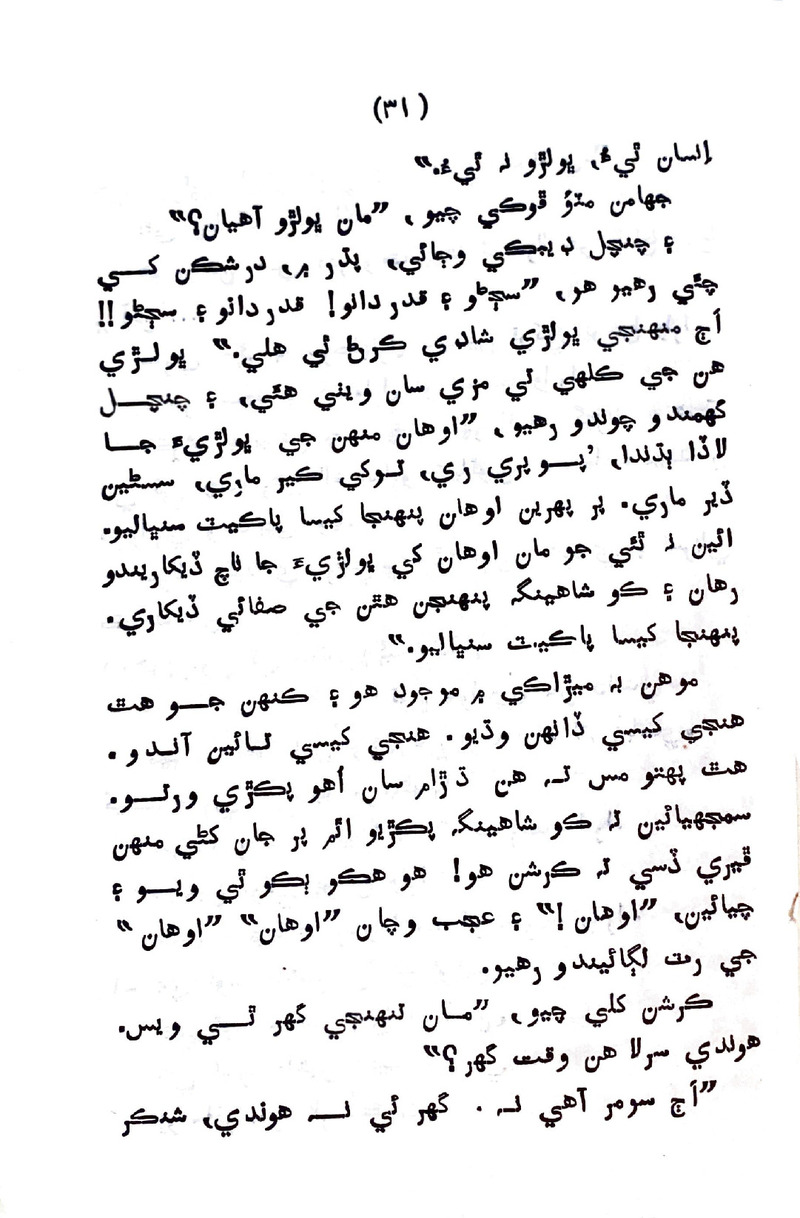 (٣١)
انسان ٿيءُ، ڀولڙو نہ ٿيءُ.“
جهامن مٿو ڦوڪي چيو، ”مان ڀولڙو آهيان؟“
۽ چنچل ڊيڄڪي وڄائي، پڌر ۾، درشڪن کي
چئي رهيو هو، ”سڄڻو ۽ قدردانو! قدردانو ۽ سڄڻو!!
اَڄ منهنجي ڀولڙي شادي ڪرڻ ٿي هلي.“ ڀولڙي
هن جي ڪلهي تي مزي سان ويٺي هئي، ۽ چنچل
گهمندو چوندو رهيو، ”اوهان منهن جي ڀولڙيءَ جا
لاڏا ٻڌندا، ’پوپري ري، توکي ڪير ماري، سسڻين
ڏير ماري. پر پهرين اوهان پنهنجا کيسا پاڪيٽ سنڀاليو.
ائين نہ ٿئي جو مان اوهان کي ڀولڙيءَ جا ناچ ڏيکاريندو
رهان ۽ ڪو شاهينگ پنهنجن هٿن جي صفائي ڏيکاري.
پنهنجا کيسا پاڪيٽ سنڀاليو.“
موهن بہ ميڙاڪي ۾ موجود هو ۽ ڪنهن جو هٿ
هنجي کيسي ڏانهن وڌيو. هنجي کيسي تائين آندو.
هٿ پهتو مس تہ هن ڌڙام سان اُهو پڪڙي ورتو.
سمجهيائين تہ ڪو شاهينگ پڪڙيو اٿم پر جان کڻي منهن
ڦيري ڏسي تہ ڪرشن هو! هو هڪو ٻڪو ٿي ويو ۽
چيائين، ”اوهان!“ ۽ عجب وچان ”اوهان“ ”اوهان“
جي رٽ لڳائيندو رهيو.
ڪرشن کلي چيو، ”مان تنهنجي گهر ٿي ويس.
هوندي سرلا هن وقت گهر؟“
”اَڄ سومر آهي نہ. گهر ئي نہ هوندي، شنڪر